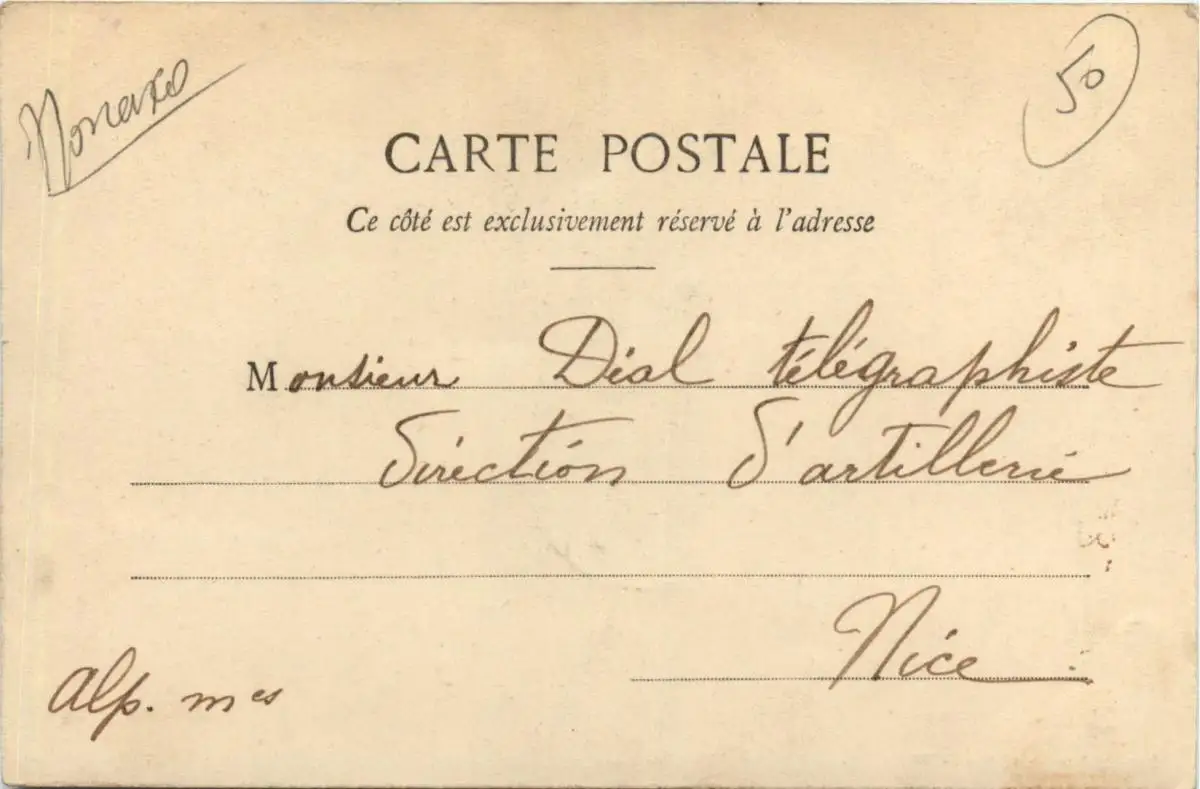 Monaco
50
CARTE POSTALE
Ce côté est exclusivement réservé à l'adresse
Monsieur Dial télégraphiste
Direction d'artillerie
Nice
Alp. mes